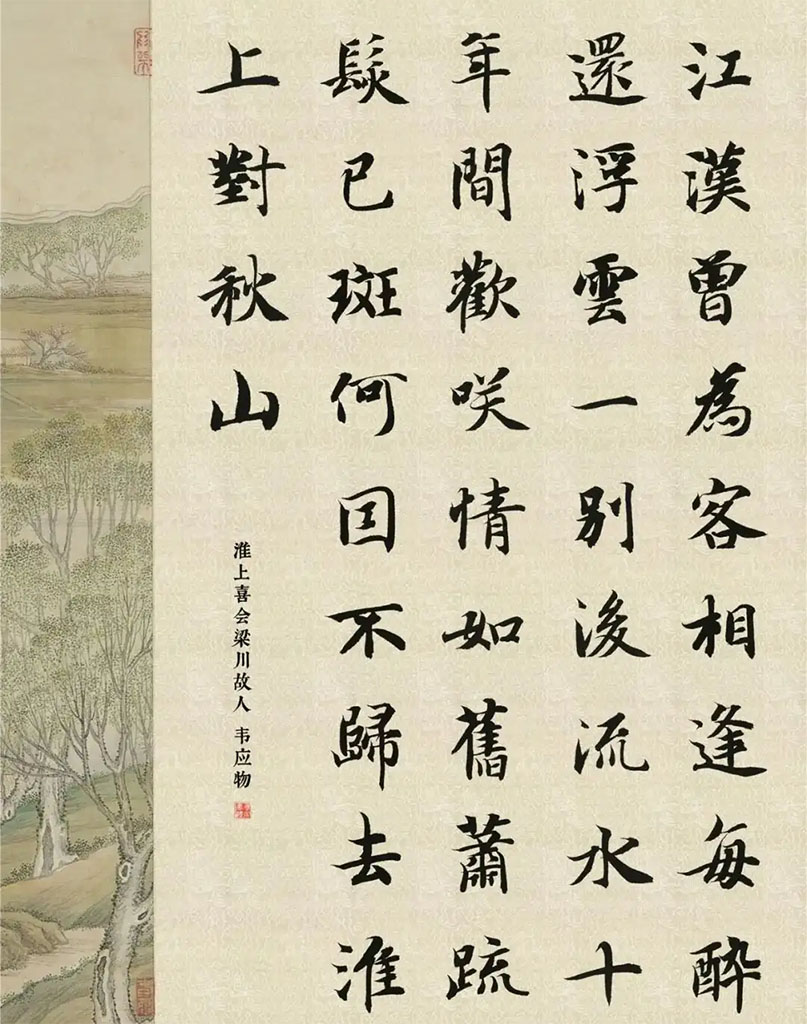 江漢曾為客相逢每醉
還浮雲一别後流水十
年間歡咲情如舊蕭疏
鬂已斑何因不歸去淮
上對秋山
淮上喜会梁川故人 韦应物